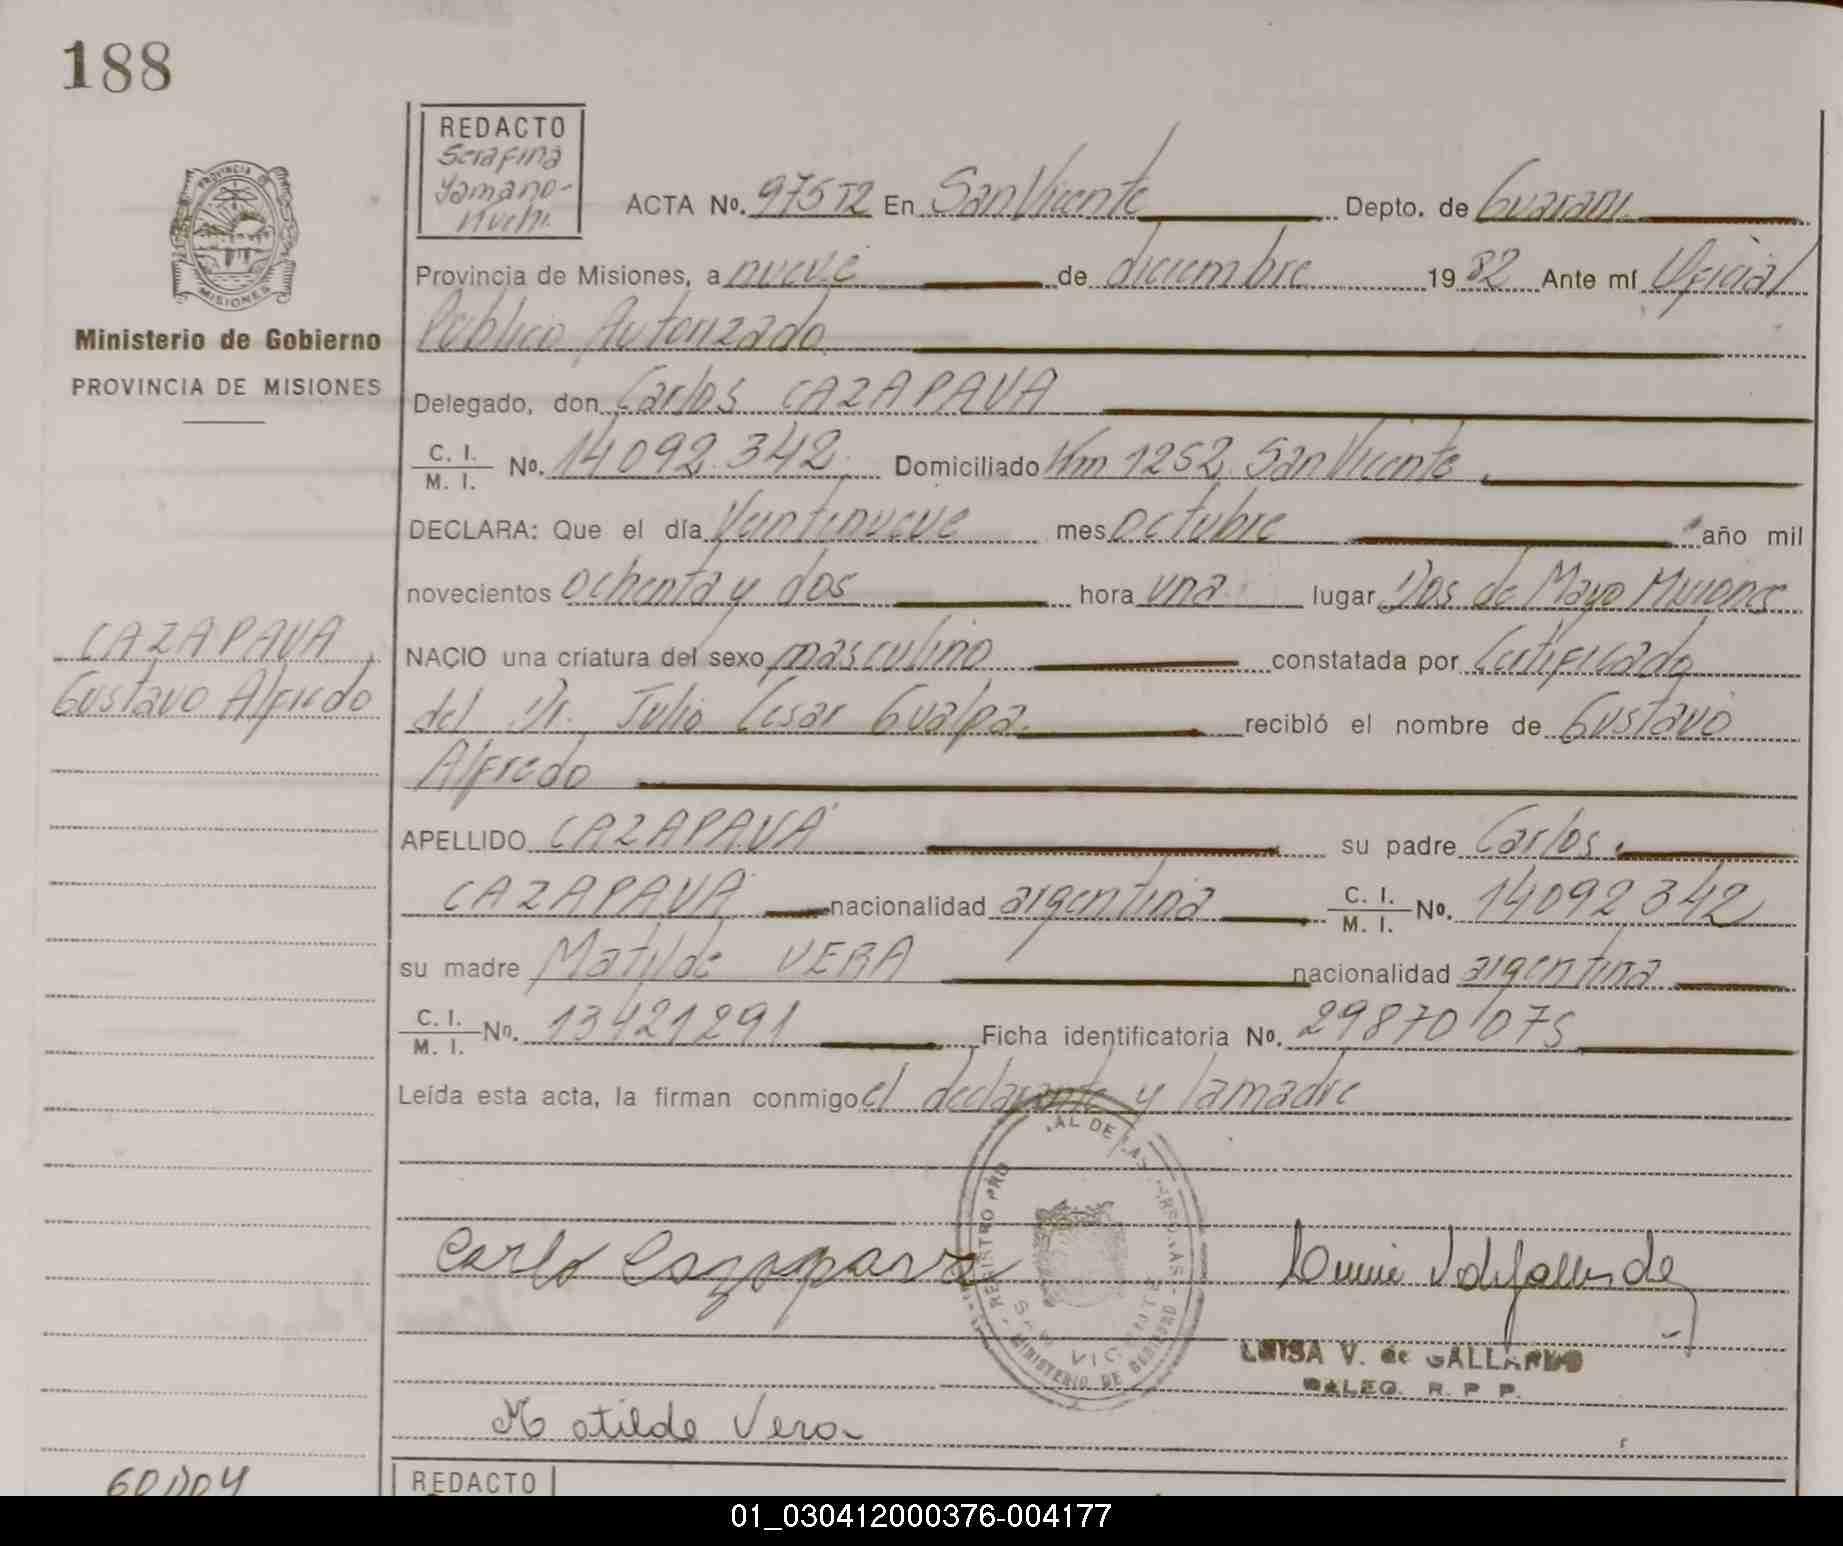 188
REDACTO
Serafina
Yamano-
Kuchi.
ACTA No. 975 T2 En San Vicente Depto. de Guarani
Provincia de Misiones, a nueve de diciembre 1982 Ante mí Oficial
Publico Autorizado
PROVINCIA DE
MISIONES
Ministerio de Gobierno
PROVINCIA DE MISIONES
Delegado, don Carlos CAZAPAVA
C. I.
M. I. No. 14092.342. Domiciliado Km 1252 San Vicente
DECLARA: Que el día Veintinueve mes octubre año mil
novecientos ochenta y dos hora una lugar Dos de Mayo Misiones
CAZAPAVA
Gustavo Alfredo
NACIO una criatura del sexo masculino constatada por Certificado
del Dr. Julio Cesar Gualpa. recibió el nombre de Gustavo
Alfredo
APELLIDO CAZAPAVA su padre Carlos
CAZAPAVA nacionalidad argentina C. I.
M. I. No. 14092342
su madre Matilde VERA nacionalidad argentina
C. I.
M. I. No. 13421291 Ficha identificatoria No. 29870075
Leída esta acta, la firman conmigo el declarante y la madre
Carlo Cazapava
REGISTRO PRO AL DE LAS PERSONAS
SAN VICENTE
MINISTERIO DE GOBIERNO
LUISA V. de GALLARDO
DELEG. R. P. P.
Matilde Vera
REDACTO
01_030412000376-004177